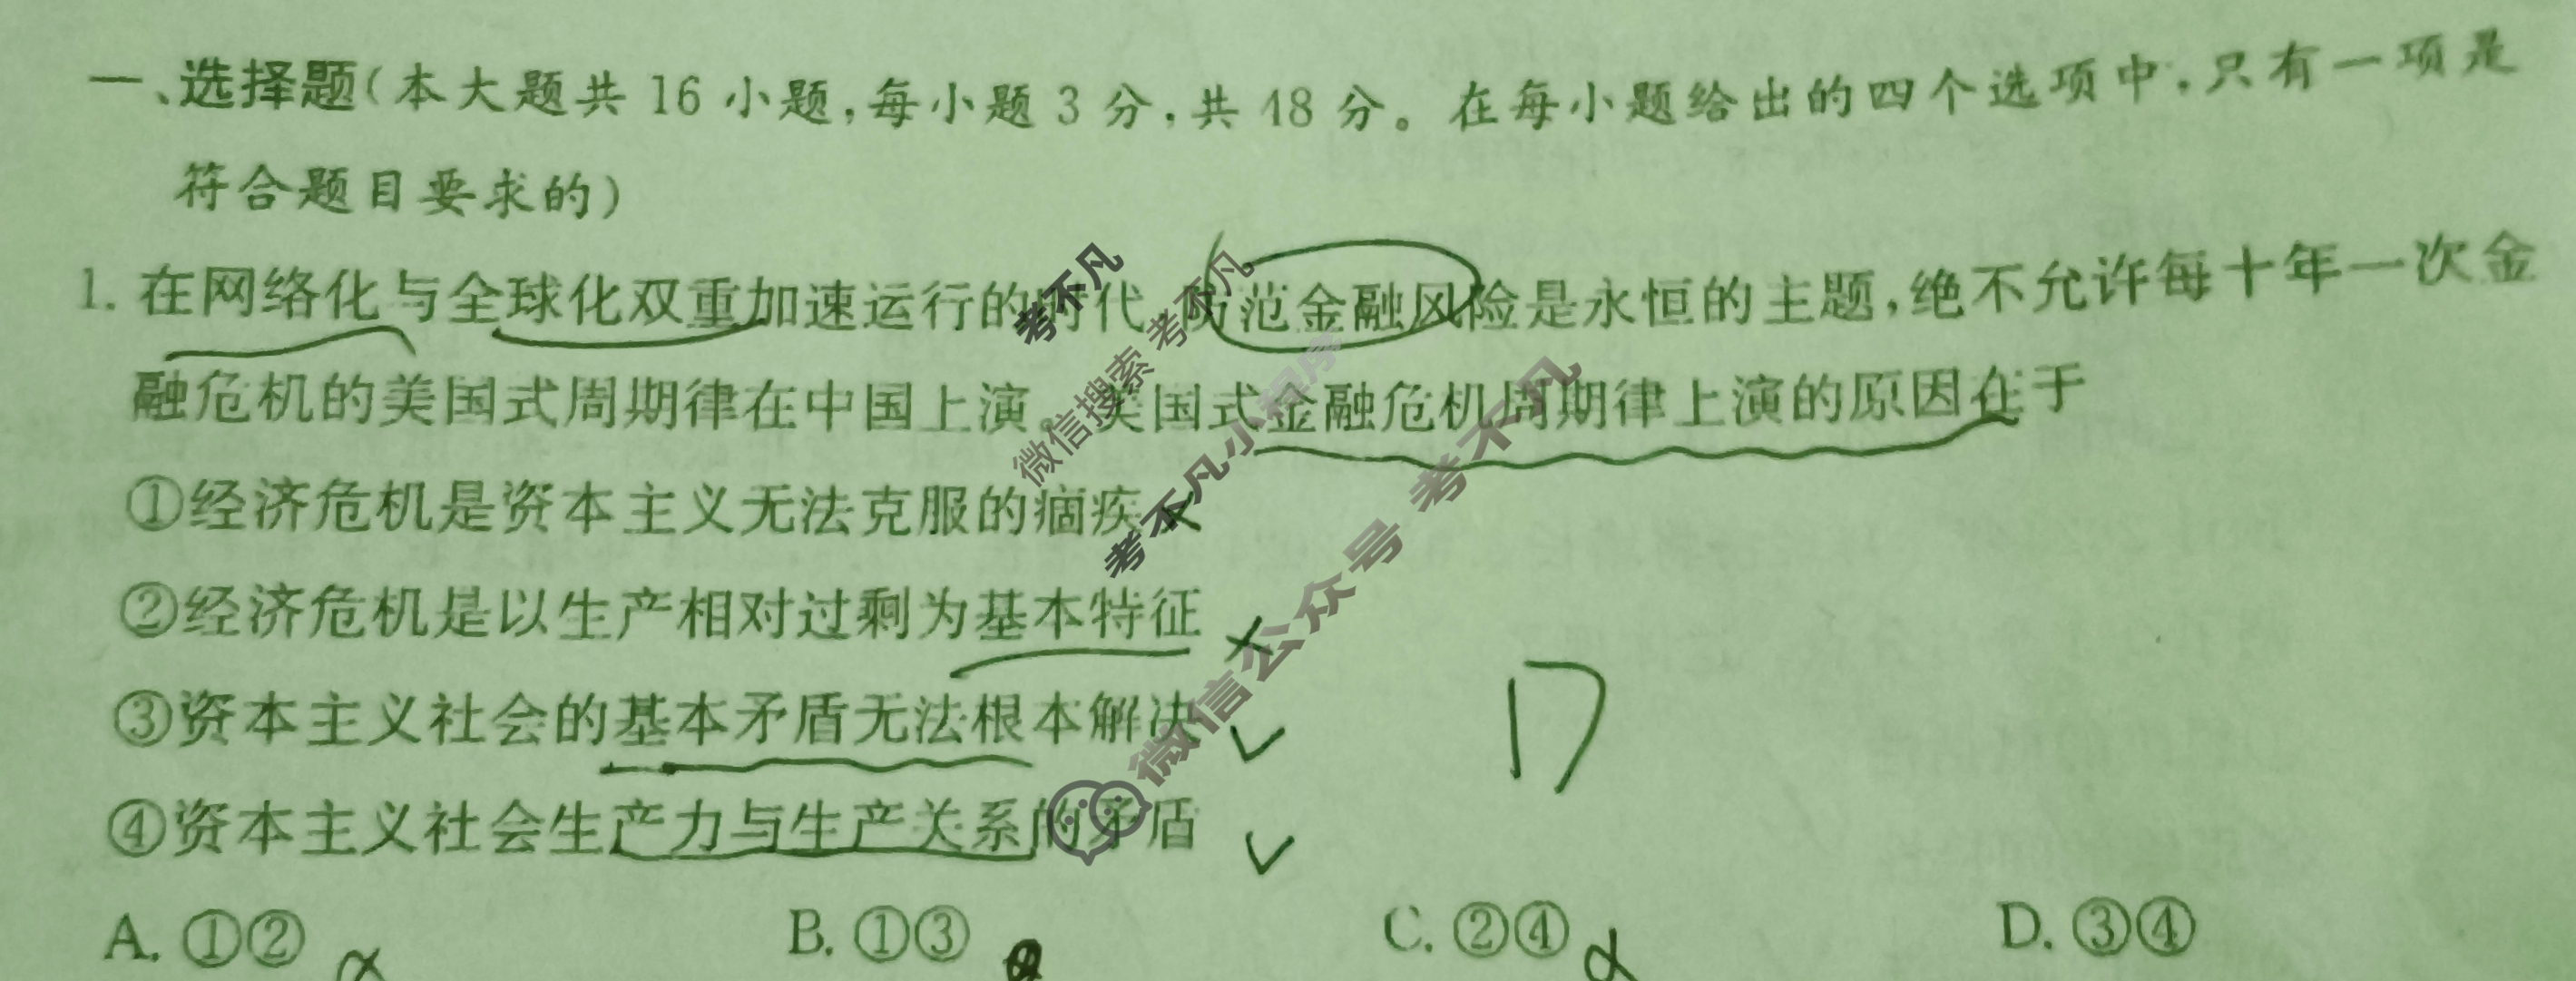 一、选择题(本大题共 16 小题,每小题 3 分,共 48 分。在每小题给出的四个选项中,只有一项是
符合题目要求的)
1. 在网络化与全球化双重加速运行的时代,防范金融风险是永恒的主题,绝不允许每十年一次金
融危机的美国式周期律在中国上演。美国式金融危机周期律上演的原因在于
①经济危机是资本主义无法克服的痼疾
②经济危机是以生产相对过剩为基本特征
③资本主义社会的基本矛盾无法根本解决
④资本主义社会生产力与生产关系的矛盾
A. ①② B. ①③ C. ②④ D. ③④
考不凡
微信搜索 考不凡
考不凡小程序
微信公众号 考不凡